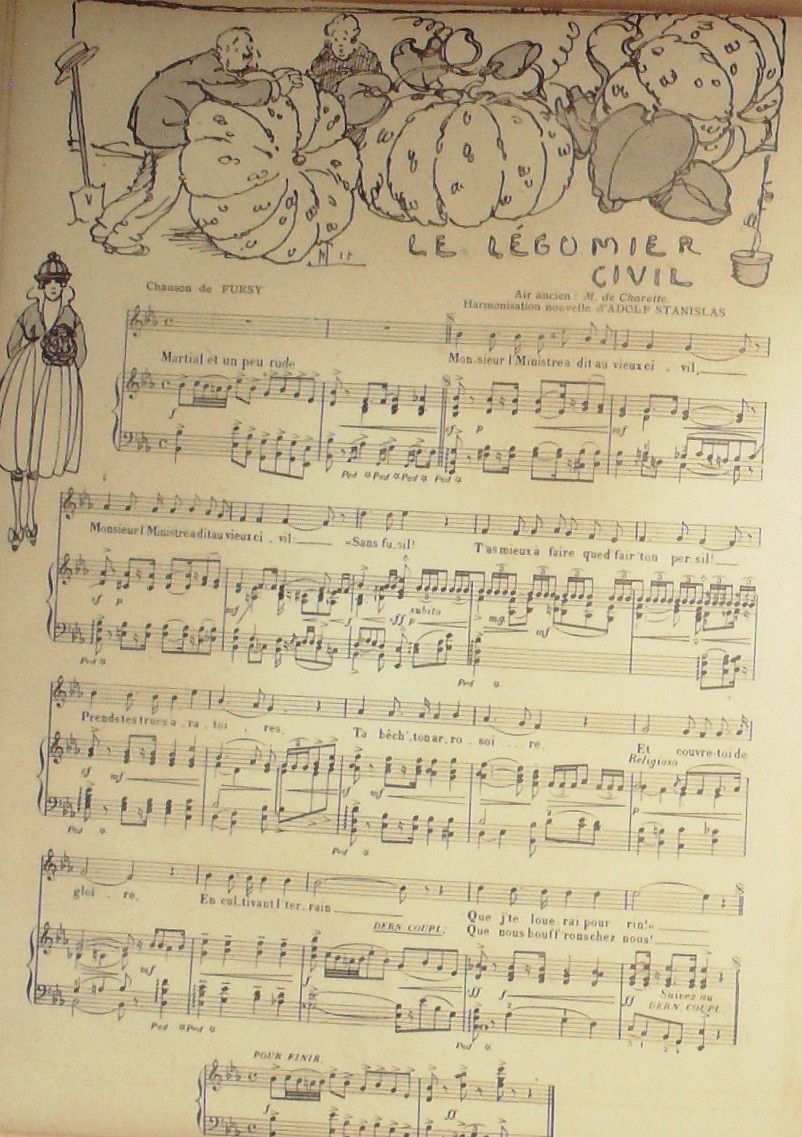 LE LÉGUMIER
CIVIL
Chanson de FURSY
Air ancien : M. de Charette.
Harmonisation nouvelle d'ADOLF STANISLAS
Martial et un peu rude
Mon.sieur l'Ministre a dit au vieux ci . vil,
f
sf p
mf
Ped * Ped * Ped * Ped *
Monsieur l'Ministre a dit au vieux ci . vil
«Sans fu.sil!
T'as mieux à faire que d'fair' ton per.sil!
sf p
mf
sff p
subito
mg.
mf
Ped *
Ped *
Prends tes trucs a . ra . toi . res,
Ta bêch', ton ar . ro . soi . . re,
Et couvre-toi de
Religioso
sf mf
sf mf
p
Ped *
Ped *
gloi . . re,
En cul.tivant l'ter.rain
Que j'te loue . rai pour rin!»
DERN. COUPL:
Que nous bouff'rons chez nous!
mf
ff f
ff
Suivez au
DERN. COUPL.
Ped * Ped *
Ped *
POUR FINIR.
f
ff